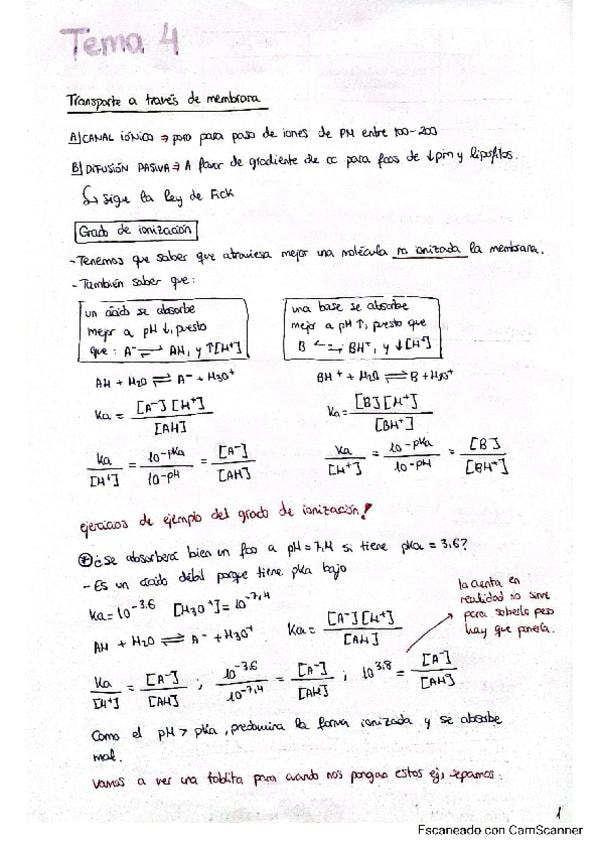 Tema 4
Transporte a través de membrana
A) CANAL IÓNICO → poro para paso de iones de PM entre 100-200
B) DIFUSIÓN PASIVA → A favor de gradiente de cc para fcos de ↓pm y lipófilos.
↳ Sigue la ley de Fick
Grado de ionización
- Tenemos que saber que atraviesa mejor una molécula no ionizada la membrana.
- También saber que:
un ácido se absorbe
mejor a pH ↓, puesto
que: A⁻ ⇌ AH, y ↑[H⁺]
una base se absorbe
mejor a pH ↑, puesto que
B ⇌ BH⁺, y ↓[H⁺]
AH + H₂O ⇌ A⁻ + H₃O⁺
BH⁺ + H₂O ⇌ B + H₃O⁺
Ka = [A⁻][H⁺] / [AH]
Ka = [B][H⁺] / [BH⁺]
Ka / [H⁺] = 10^-pKa / 10^-pH = [A⁻] / [AH]
Ka / [H⁺] = 10^-pKa / 10^-pH = [B] / [BH⁺]
ejercicios de ejemplo del grado de ionización!
¿Se absorberá bien un fco a pH = 7,4 si tiene pKa = 3,6?
- Es un ácido débil porque tiene pKa bajo
Ka = 10^-3.6 [H₃O⁺] = 10^-7,4
AH + H₂O ⇌ A⁻ + H₃O⁺ Ka = [A⁻][H⁺] / [AH]
la cuenta en
realidad no sirve
para saberlo pero
hay que ponerla.
Ka / [H⁺] = [A⁻] / [AH] ; 10^-3.6 / 10^-7,4 = [A⁻] / [AH] ; 10^3.8 = [A⁻] / [AH]
Como el pH > pKa, predomina la forma ionizada y se absorbe
mal.
Vamos a ver una tablita para cuando nos pongan estos ej, sepamos:
1
Escaneado con CamScanner